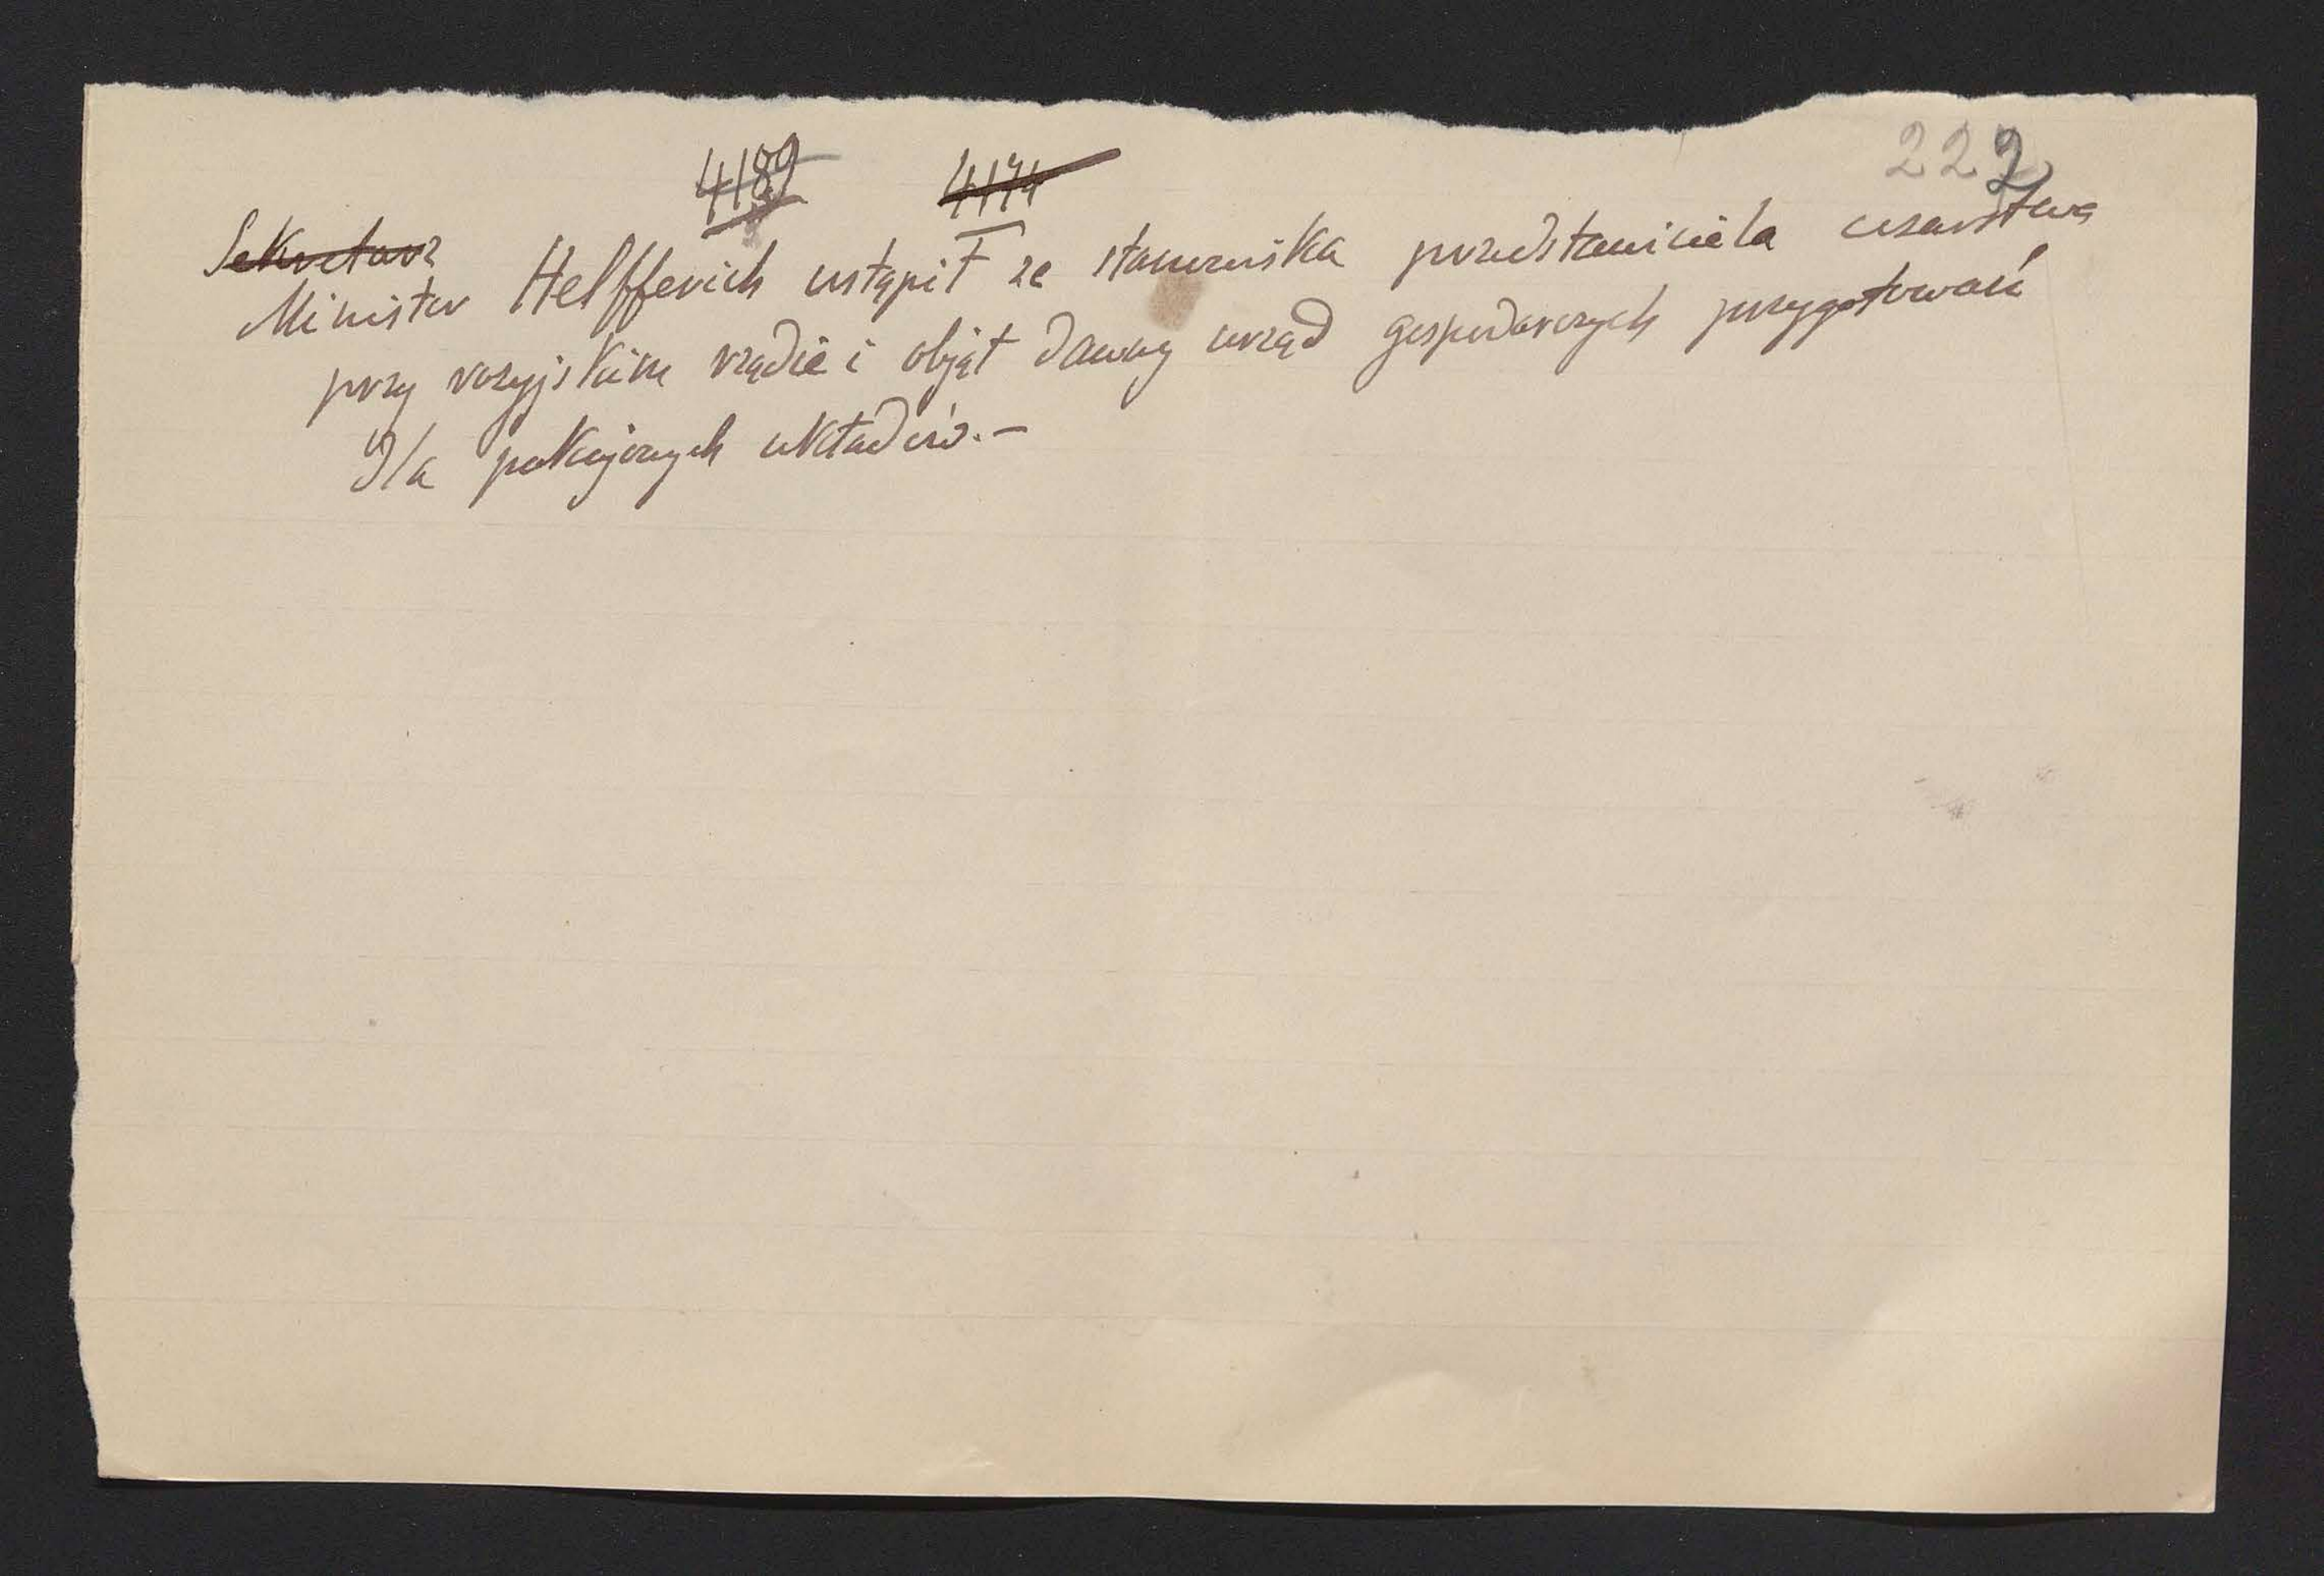 4189 4174 222
Sekretarz
Minister Helfferich ustąpił ze stanowiska przedstawiciela cesarstwa
przy rosyjskim rządzie i objął dawny urząd gospodarczych przygotowań
dla pokojowych układów.-